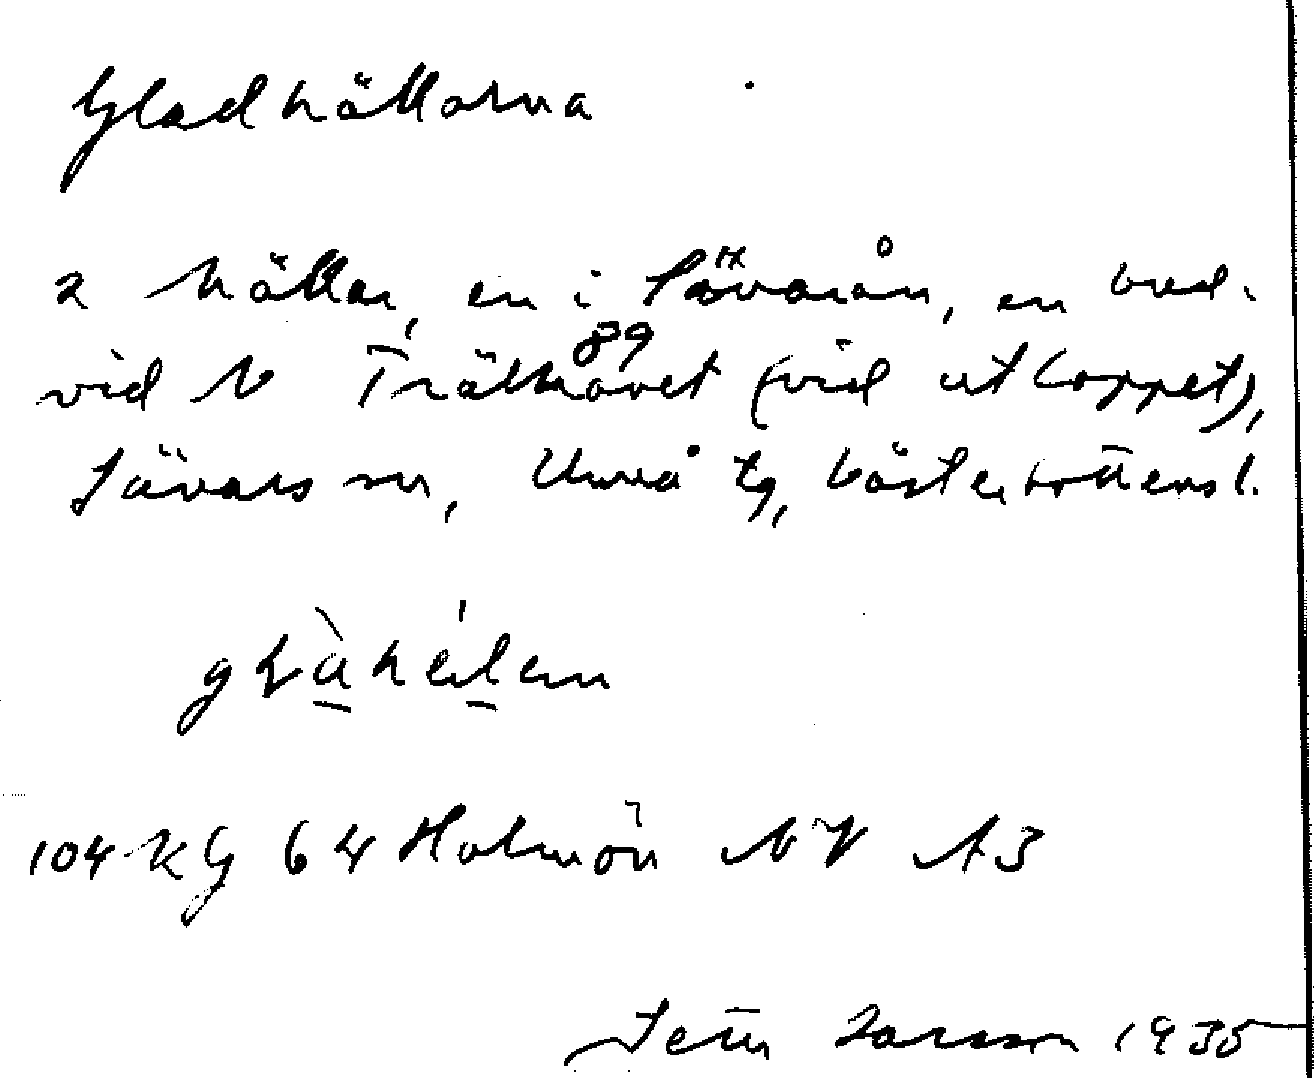 Gladhällorna
2 hällar, en i Sävarån, en bred-
vid b Trälhavet 89 (vid utloppet),
Sävars sn, Umeå tg, Västerbottens l.
104 KG 64 Holmön NV A3
Seth Larsson 1935